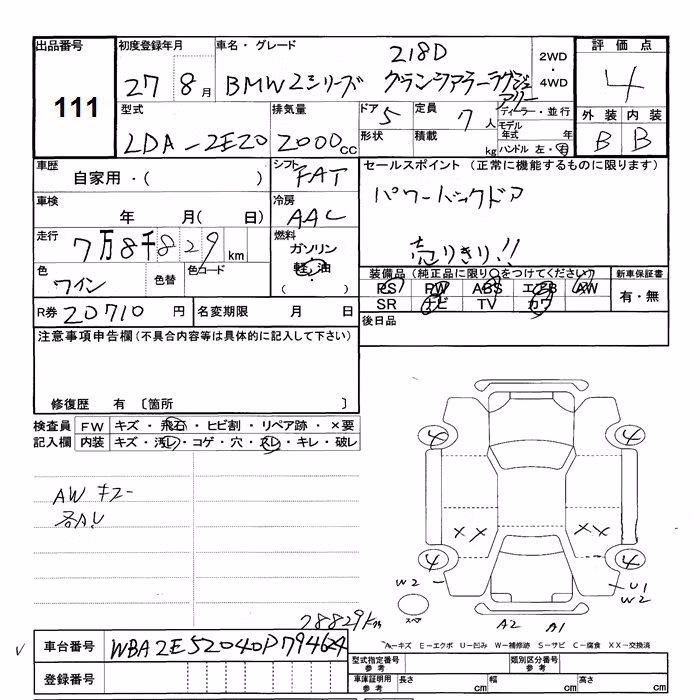 出品番号 111
初度登録年月 27 8月
車名・グレード 218D
BMW2シリーズ グランツアラーラグジュアリー
2WD・4WD
評価点 4
外装 内装
B B
型式 LDA-2E20
排気量 2000cc
ドア 5
形状
定員 7人
積載 kg
ディーラー・並行
モデル年式 年
ハンドル 左・右
車歴 自家用・( )
シフト FAT
車検 年 月( 日)
冷房 AAC
走行 7万8千829km
燃料 ガソリン
軽油
( )
色 ワイン 色替 色コード
R券 20710円 名変期限 月 日
セールスポイント (正常に機能するものに限ります)
パワーバックドア
売りきり!!
装備品(純正品に限り○をつけてください)
PS PW ABS エアB AW
SR ナビ TV カワ
新車保証書
有・無
後日品
注意事項申告欄(不具合内容等は具体的に記入して下さい)
修復歴 有 〔箇所 〕
検査員記入欄
FW キズ・飛石・ヒビ割・リペア跡・×要
内装 キズ・汚レ・コゲ・穴・スレ・キレ・破レ
AW キズー
各AU
4 4
×× ××
4 4
W2
スペア
U1
W2
A2 A1
78829km
車台番号 WBA2E52040P79464
登録番号
A-キズ E-エクボ U-凹み W-補修跡 S-サビ C-腐食 XX-交換済
型式指定番号 参考
類別区分番号 参考
車庫証明用 参考 長さ cm 幅 cm 高さ cm